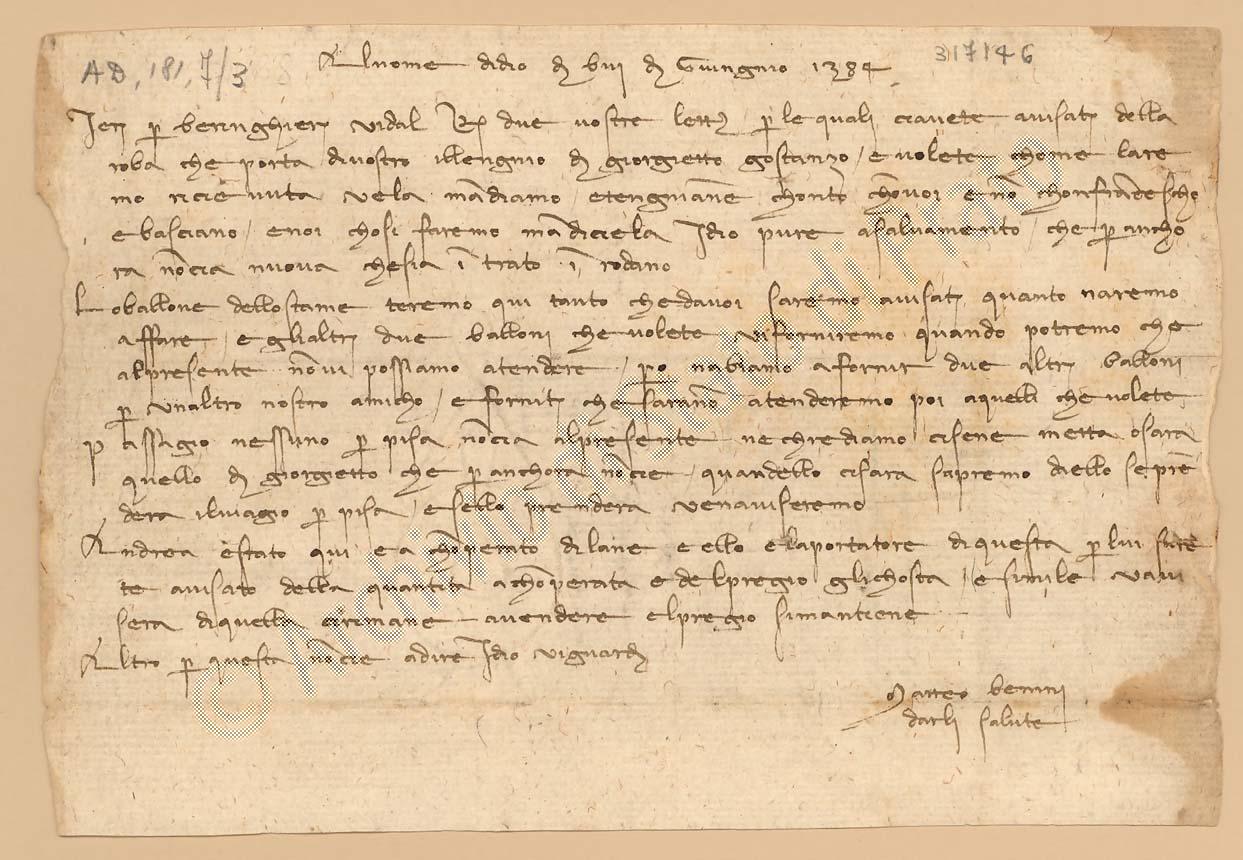 AD, 181, 7/3
317146
Al nome di dio dì VII di Giungnio 1384
Ieri per beringhieri vidal R. due vostre lettere per le quali ci avete avisati della
roba che porta di vostro il lengnio di giorgietto gostanzo / e volete chome l'are
mo ricievuta ve la mãdiamo e tengniane chonto chõ voi e nõ chon frãdescho
e basciano / e noi chosi faremo mãdiciela Idio pure a salvamento / che per ancho
ra nõ cia nuova che sia ĩ trato ĩ rodano
Lo ballone dello stame teremo qui tanto che da voi saremo avisati quanto n'aremo
affare / e gli altri due balloni che volete vi forniremo quando potremo che
al presente nõ vi possiamo atendere / però n'abiamo a fornir due altri balloni
per un altro nostro amicho / e forniti che sarãno atenderemo poi a quelli che volete
Passagio nessuno per pisa nõ cia al presente ne chrediamo ci sene metta o sara
quello di giorgietto che per anchora nõ cie / quand'ello ci sara sapremo d'ello se prẽ
dera il viagio per pisa / e s'ello prendera ve n'aviseremo
Andrea è stato qui e a chõperato di lane e ello è l'aportatore di questa per lui sare
te avisato della quantita a chõperata e del pregio gli chosta / e simile v'avi
sera di quella ci rimane a vendere e'l pregio si mantiene
Altro per questa nõ cie a dire Idio vi guardi
Matteo benini
d'arli salute
© Archivio di Stato di Prato